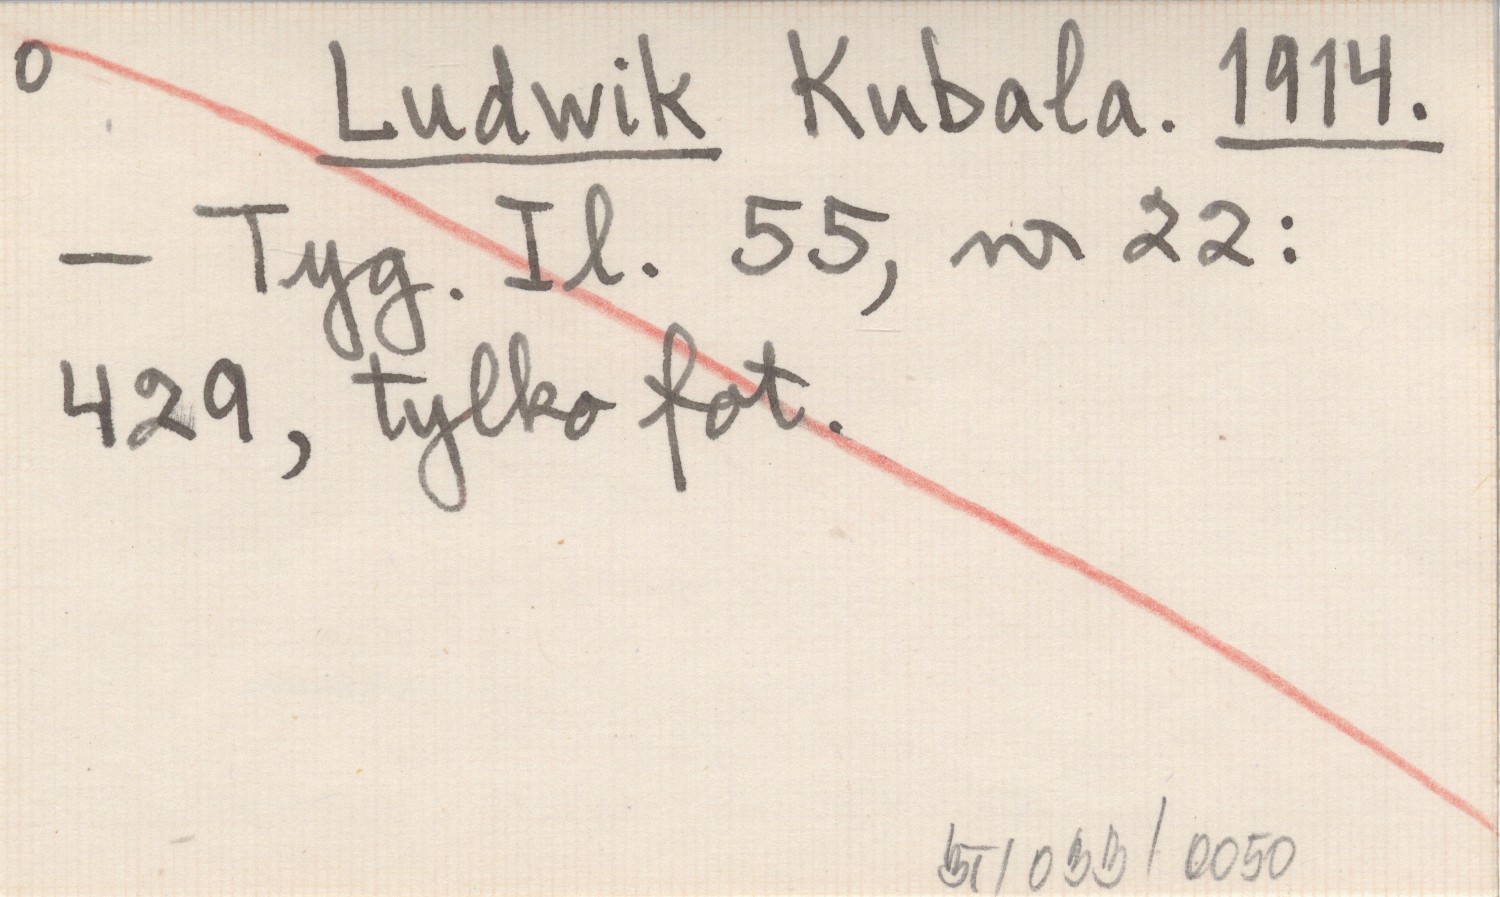 o Ludwik Kubala. 1914.
— Tyg. Il. 55, nr 22:
429, tylko fot.
/033/0050